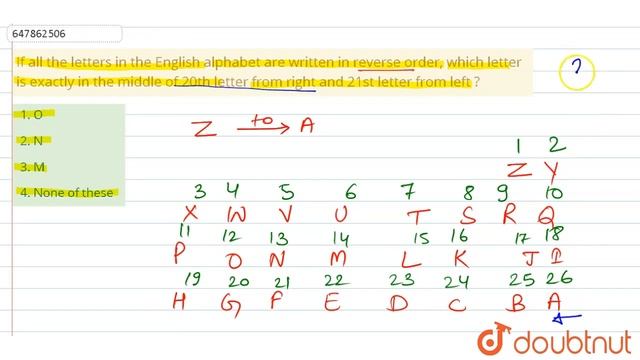 647862506
If all the letters in the English alphabet are written in reverse order, which letter
is exactly in the middle of 20th letter from right and 21st letter from left ?
?
1. O
2. N
3. M
4. None of these
Z to A
1 2
Z Y
3 4 5 6 7 8 9 10
X W V U T S R Q
11 12 13 14 15 16 17 18
P O N M L K J I
19 20 21 22 23 24 25 26
H G F E D C B A
doubtnut